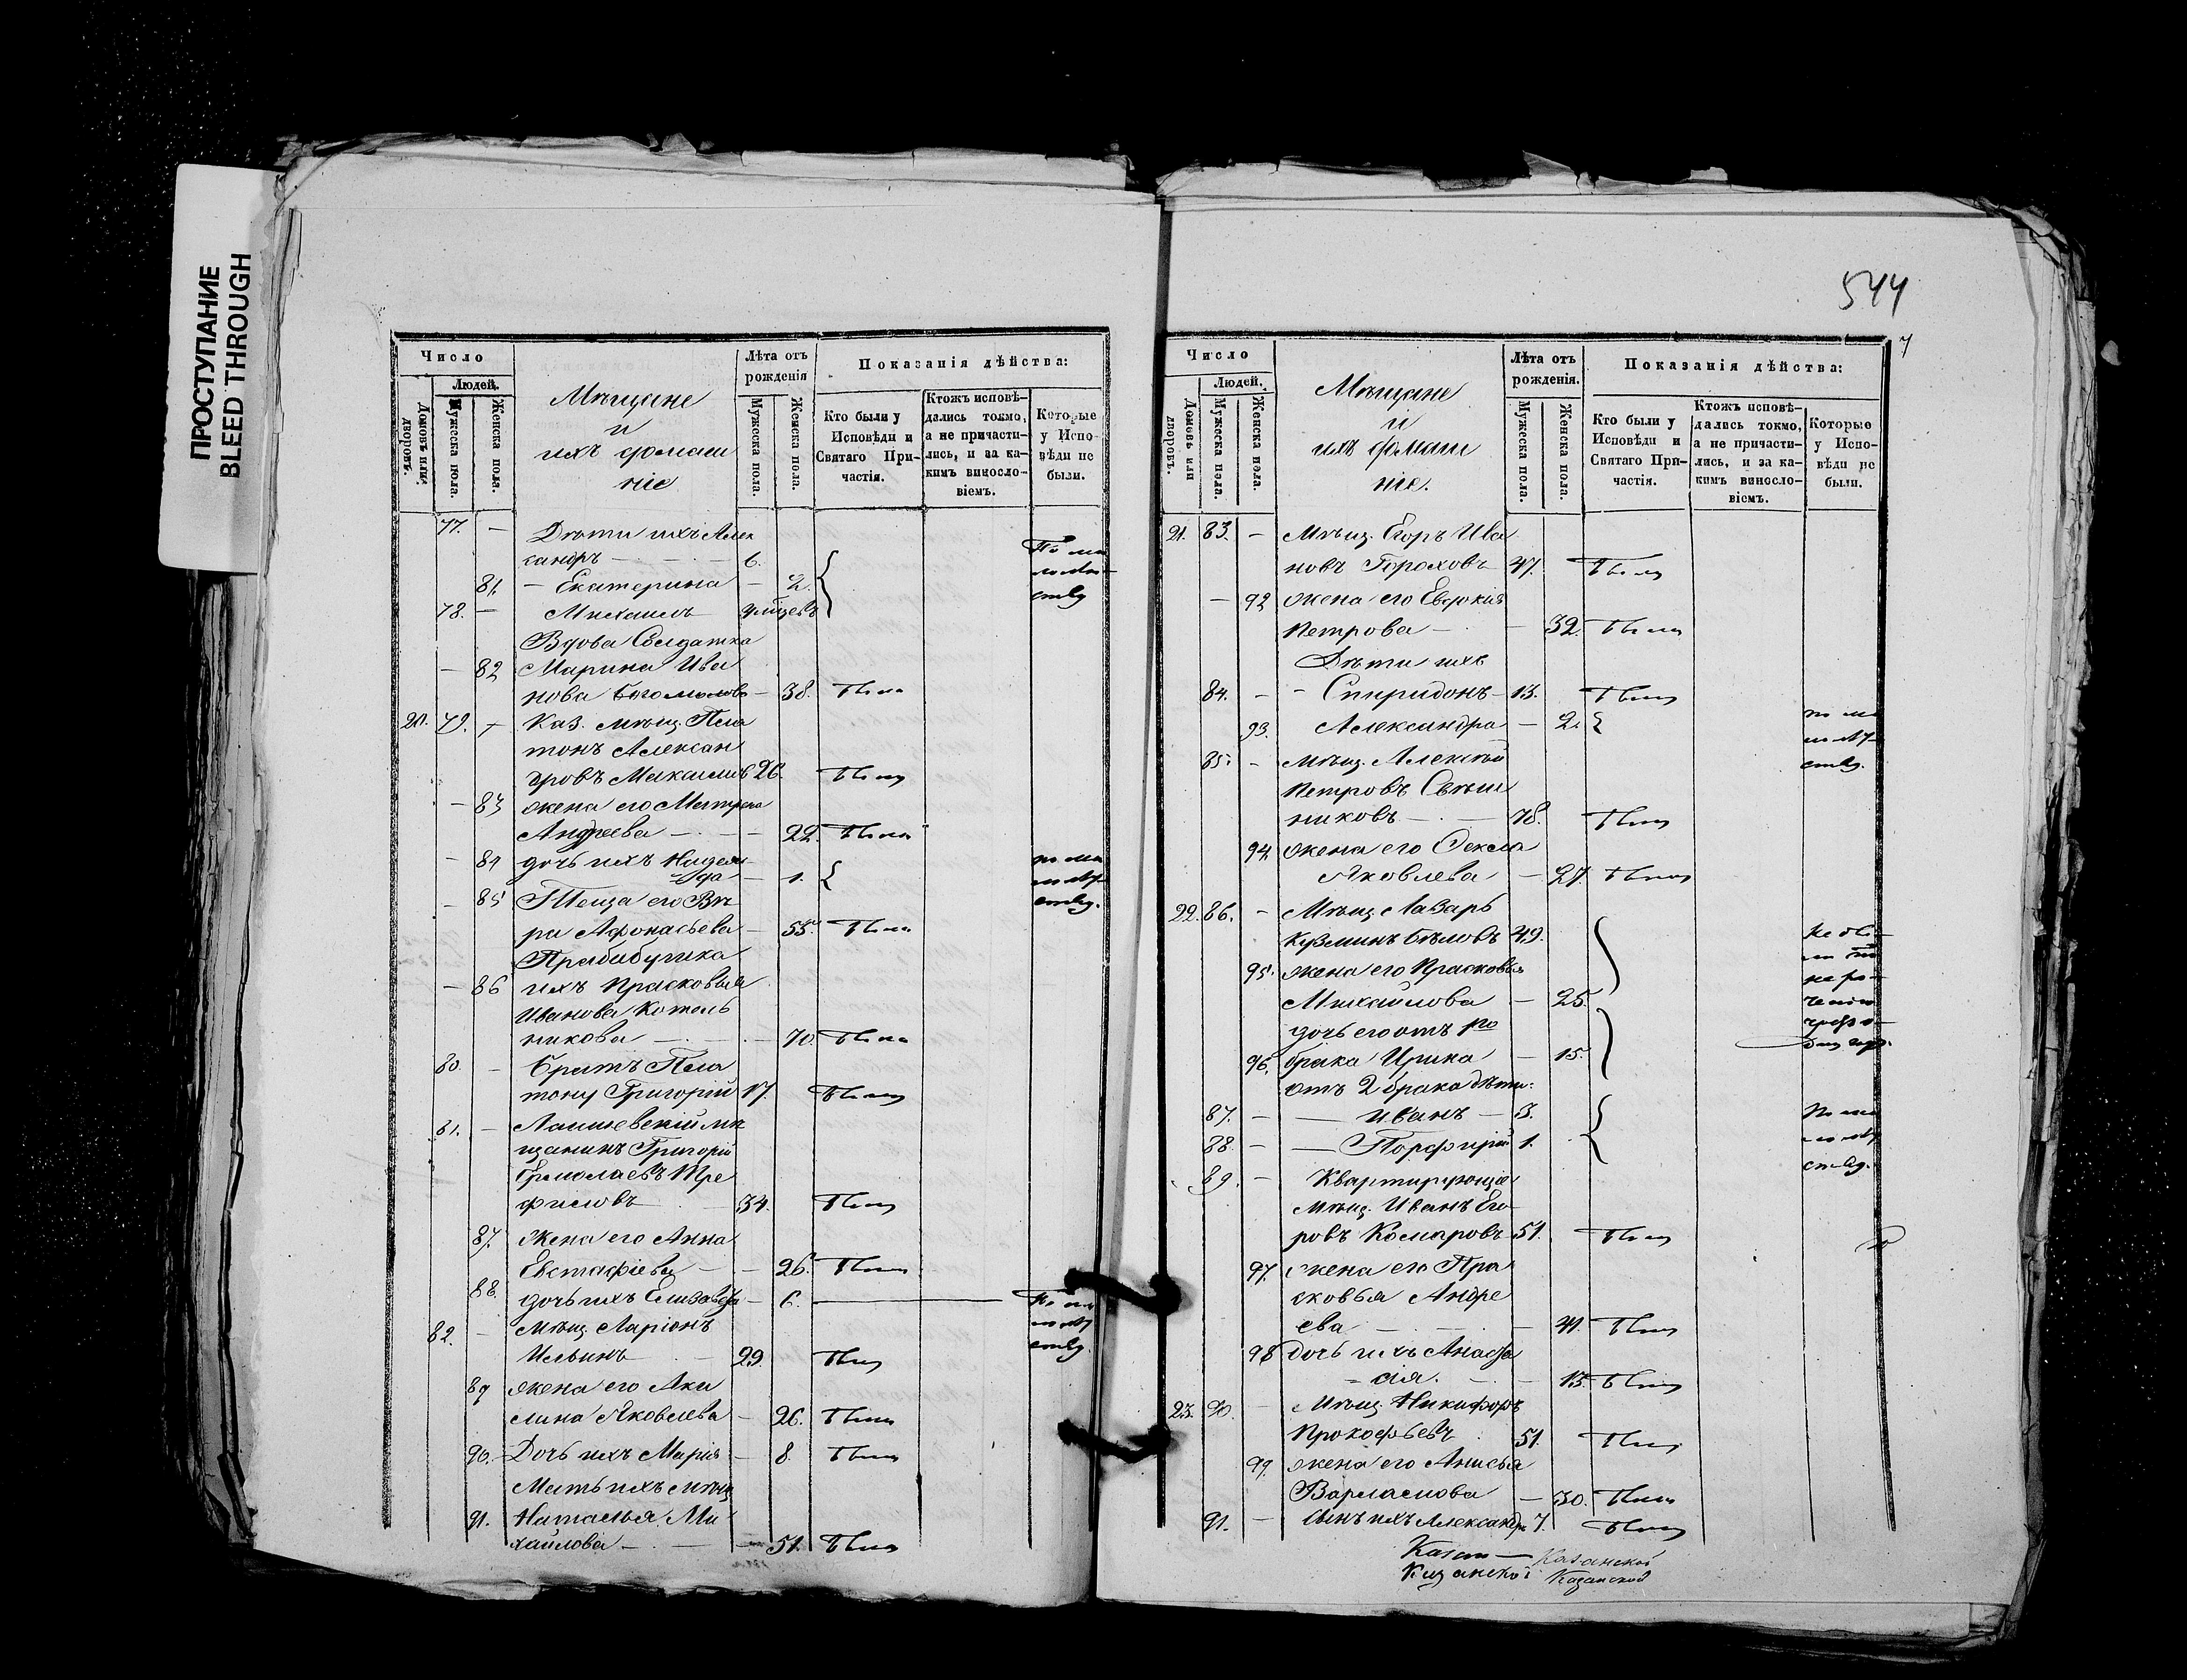 ПРОСТУПАНИЕ
BLEED THROUGH
544
7
Число
Людей.
Домовъ или дворовъ.
Мужеска пола.
Женска пола.
Мѣщане
и
ихъ домаш
ніе
Лѣта отъ рожденія
Мужеска пола.
Женска пола.
Показанія дѣйства:
Кто были у Исповѣди и Святаго При-
частія.
Ктожъ исповѣ-
дались токмо,
а не причасти-
лись, и за ка-
кимъ винословіемъ.
Которые
у Испо-
вѣди не
были.
77. — Дѣти ихъ Алек
сандръ — 6. По ма
81. — Екатерина — 2. лолѣт
78. — Михаилъ ству
Вдова Солдатка
— 82 Марина Ива
нова Богомолова — 38. Была
20. 79. — Каз. мѣщ. Пла
тонъ Алексан
дровъ 26. Былъ
— 83 жена его Матрена
Андреева — 22. Была
— 84 дочь ихъ Надеж по ма
да — 1. лолѣт
— 85 Теща его Вѣ ству.
ра Афонасьева — 55. Была
Прабабушка
— 86 ихъ Прасковья
Иванова Котель
никова — 70. Была
80. — Братъ Пла
тону Григорій 17. Былъ
81. — Лаишевскій мѣ
щанинъ Григорій
Ермолаевъ Тре
филовъ — 34. Былъ
87. Жена его Анна
Евстафіева — 26. Была
88. дочь ихъ Елизавета — 6. — По ма
82. — Мѣщ. Ларіонъ лолѣт
Ильинъ — 29. Былъ ству.
89 жена его Аку
лина Яковлева — 26. Была
90. Дочь ихъ Марія — 8. Была
Мать ихъ мѣщ.
91. Наталья Ми
хайлова — 51. Была
Число
Людей.
Домовъ или дворовъ.
Мужеска пола.
Женска пола.
Мѣщане
и
ихъ домаш
ніе.
Лѣта отъ рожденія.
Мужеска пола.
Женска пола.
Показанія дѣйства:
Кто были у Исповѣди и Святаго При-
частія.
Ктожъ исповѣ-
дались токмо,
а не причасти-
лись, и за ка-
кимъ винословіемъ.
Которые
у Испо-
вѣди не
были.
21. 83. — Мѣщ. Егоръ Ива
новъ Гороховъ 47. Былъ
— 92 жена его Евдокія
Петрова — 32. Была
Дѣти ихъ
84. — Спиридонъ — 13. Былъ
93. Александра — 2. по ма
лолѣт
85. — мѣщ. Алексѣй ству.
Петровъ Свѣш
никовъ — Былъ
94. жена его Фекла
Яковлева — 27. Была
22. 86. — Мѣщ. Лазарь
Кузминъ Бѣловъ 49.
95. жена его Прасковья
Михайлова — 25.
дочь его отъ 1го
96. брака Ирина — 15.
отъ 2 брака дѣти:
87. — Иванъ — 3. По ма
88. — Порфирій 1. лолѣт
ству.
89. — Квартирующіе
мѣщ. Иванъ Его
ровъ Комаровъ 51. Былъ
97. жена его Пра
сковья Андре
ева — 41. Была
98 дочь ихъ Анаста
сія. — 13. Была
23. 90. — Мѣщ. Никифоръ
Прокофьевъ 51. Былъ
99. жена его Анисья
Варламова — 30. Была
91. — Сынъ ихъ Александръ 7. Былъ
Казан— Казанской
Казанской Казанской